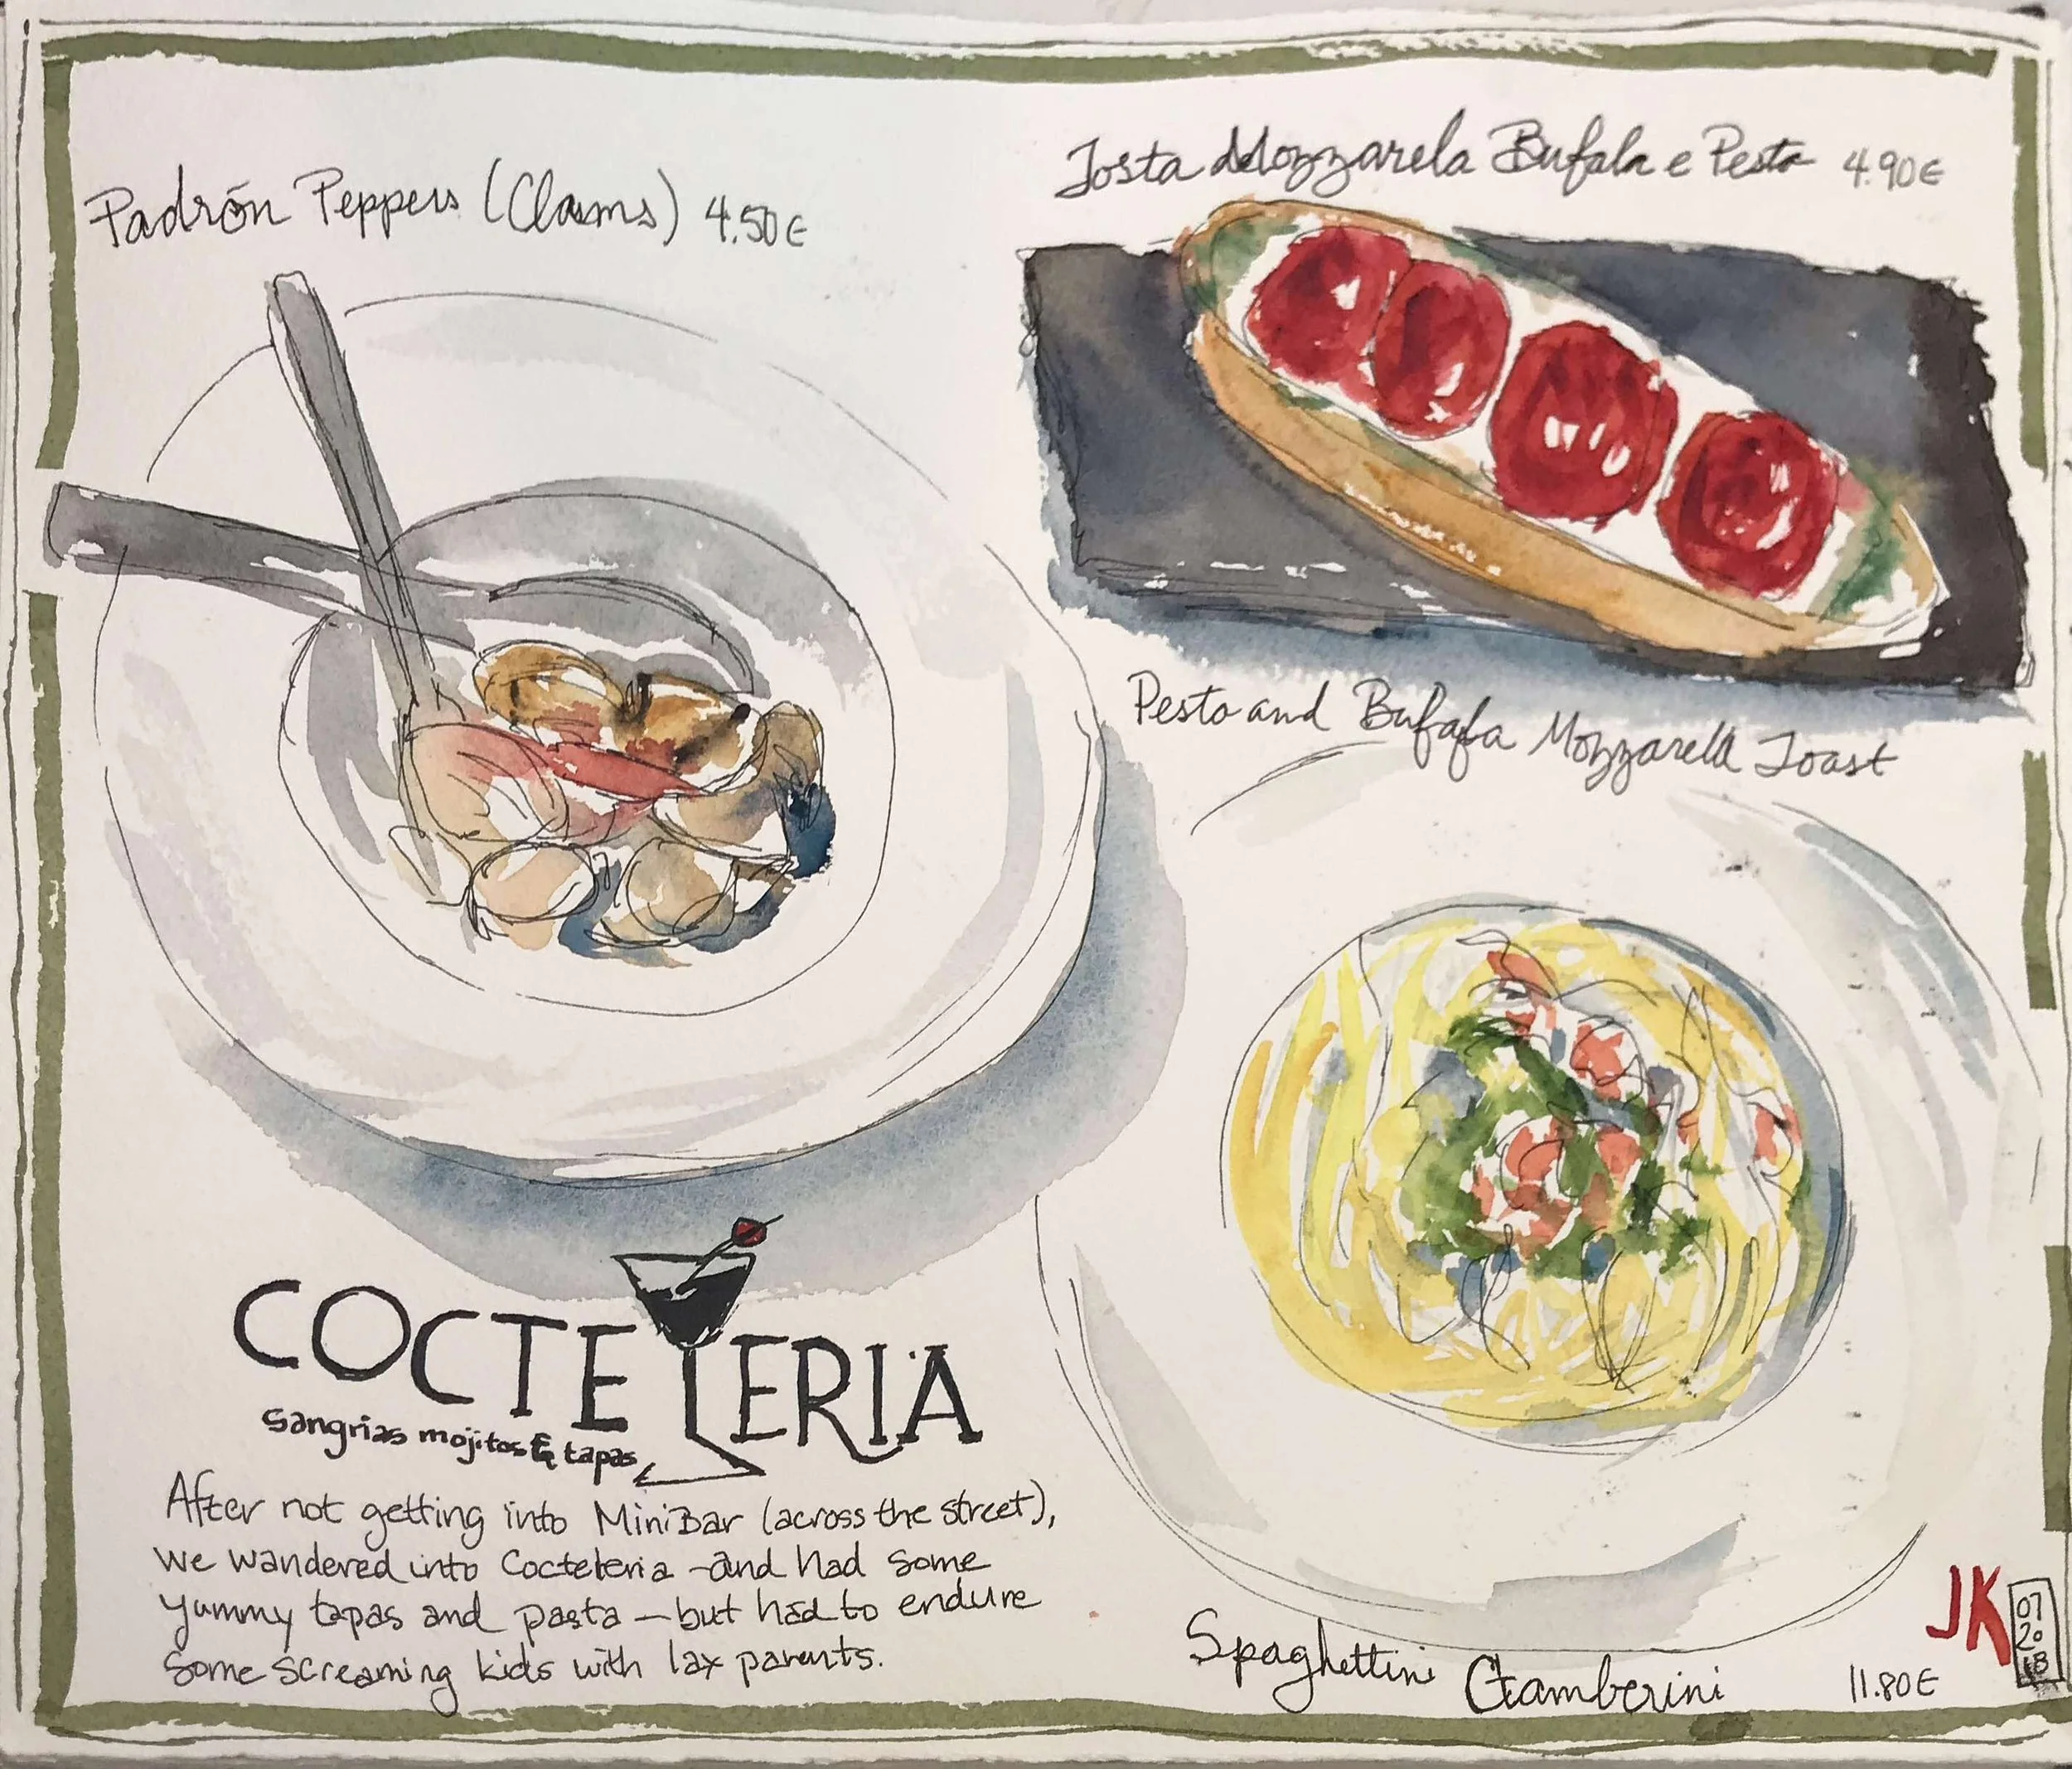 Padrón Peppers (Clams) 4.50€
Tosta Mozzarela Bufala e Pesto 4.90€
Pesto and Bufala Mozzarella Toast
COCTELERIA
sangrias mojitos & tapas
After not getting into MiniBar (across the street),
we wandered into Cocteleria - and had some
yummy tapas and pasta - but had to endure
some screaming kids with lax parents.
Spaghettini Gamberini 11.80€
JK
07
20
18